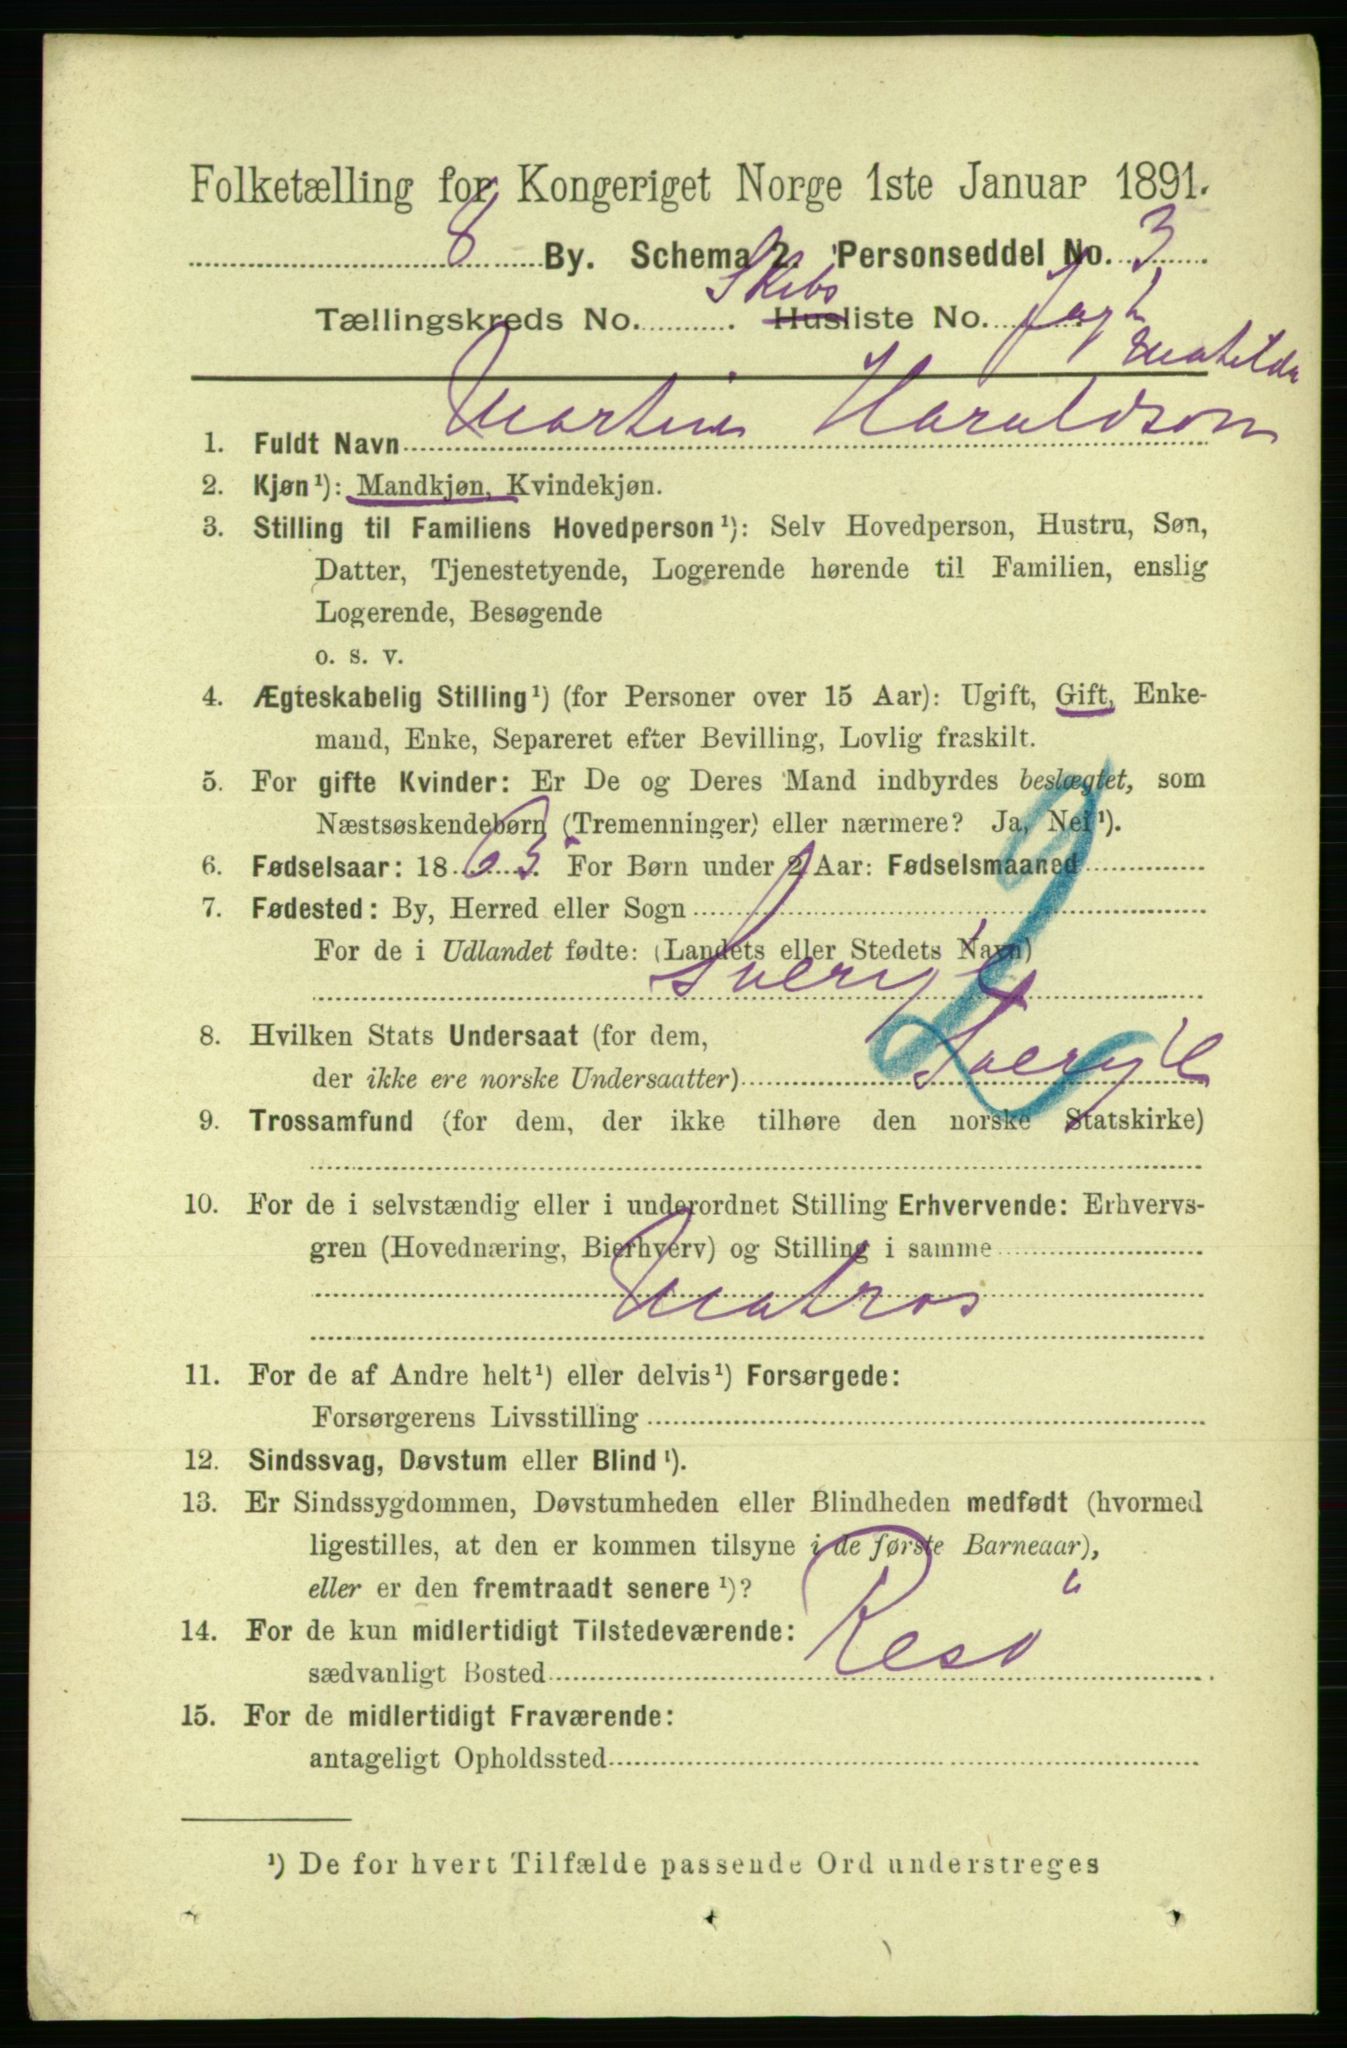 Folketælling for Kongeriget Norge 1ste Januar 1891.
8 By. Schema 2. Personseddel No. 3
Skibs
Tællingskreds No. Husliste No. Jagt
Mathilda
1. Fuldt Navn Martin Haraldson
2. Kjøn¹): Mandkjøn, Kvindekjøn.
3. Stilling til Familiens Hovedperson¹): Selv Hovedperson, Hustru, Søn,
Datter, Tjenestetyende, Logerende hørende til Familien, enslig
Logerende, Besøgende
o. s. v.
4. Ægteskabelig Stilling¹) (for Personer over 15 Aar): Ugift, Gift, Enke-
mand, Enke, Separeret efter Bevilling, Lovlig fraskilt.
5. For gifte Kvinder: Er De og Deres Mand indbyrdes beslægtet, som
Næstsøskendebørn (Tremenninger) eller nærmere? Ja, Nei¹).
6. Fødselsaar: 1863. For Børn under 2 Aar: Fødselsmaaned
7. Fødested: By, Herred eller Sogn
For de i Udlandet fødte: (Landets eller Stedets Navn)
Sverige
8. Hvilken Stats Undersaat (for dem,
der ikke ere norske Undersaatter) Sverige
9. Trossamfund (for dem, der ikke tilhøre den norske Statskirke)
10. For de i selvstændig eller i underordnet Stilling Erhvervende: Erhvervs-
gren (Hovednæring, Bierhverv) og Stilling i samme
Matros
11. For de af Andre helt¹) eller delvis¹) Forsørgede:
Forsørgerens Livsstilling
12. Sindssvag, Døvstum eller Blind¹).
13. Er Sindssygdommen, Døvstumheden eller Blindheden medfødt (hvormed
ligestilles, at den er kommen tilsyne i de første Barneaar),
eller er den fremtraadt senere¹)?
14. For de kun midlertidigt Tilstedeværende:
sædvanligt Bosted Resö
15. For de midlertidigt Fraværende:
antageligt Opholdssted
¹) De for hvert Tilfælde passende Ord understreges